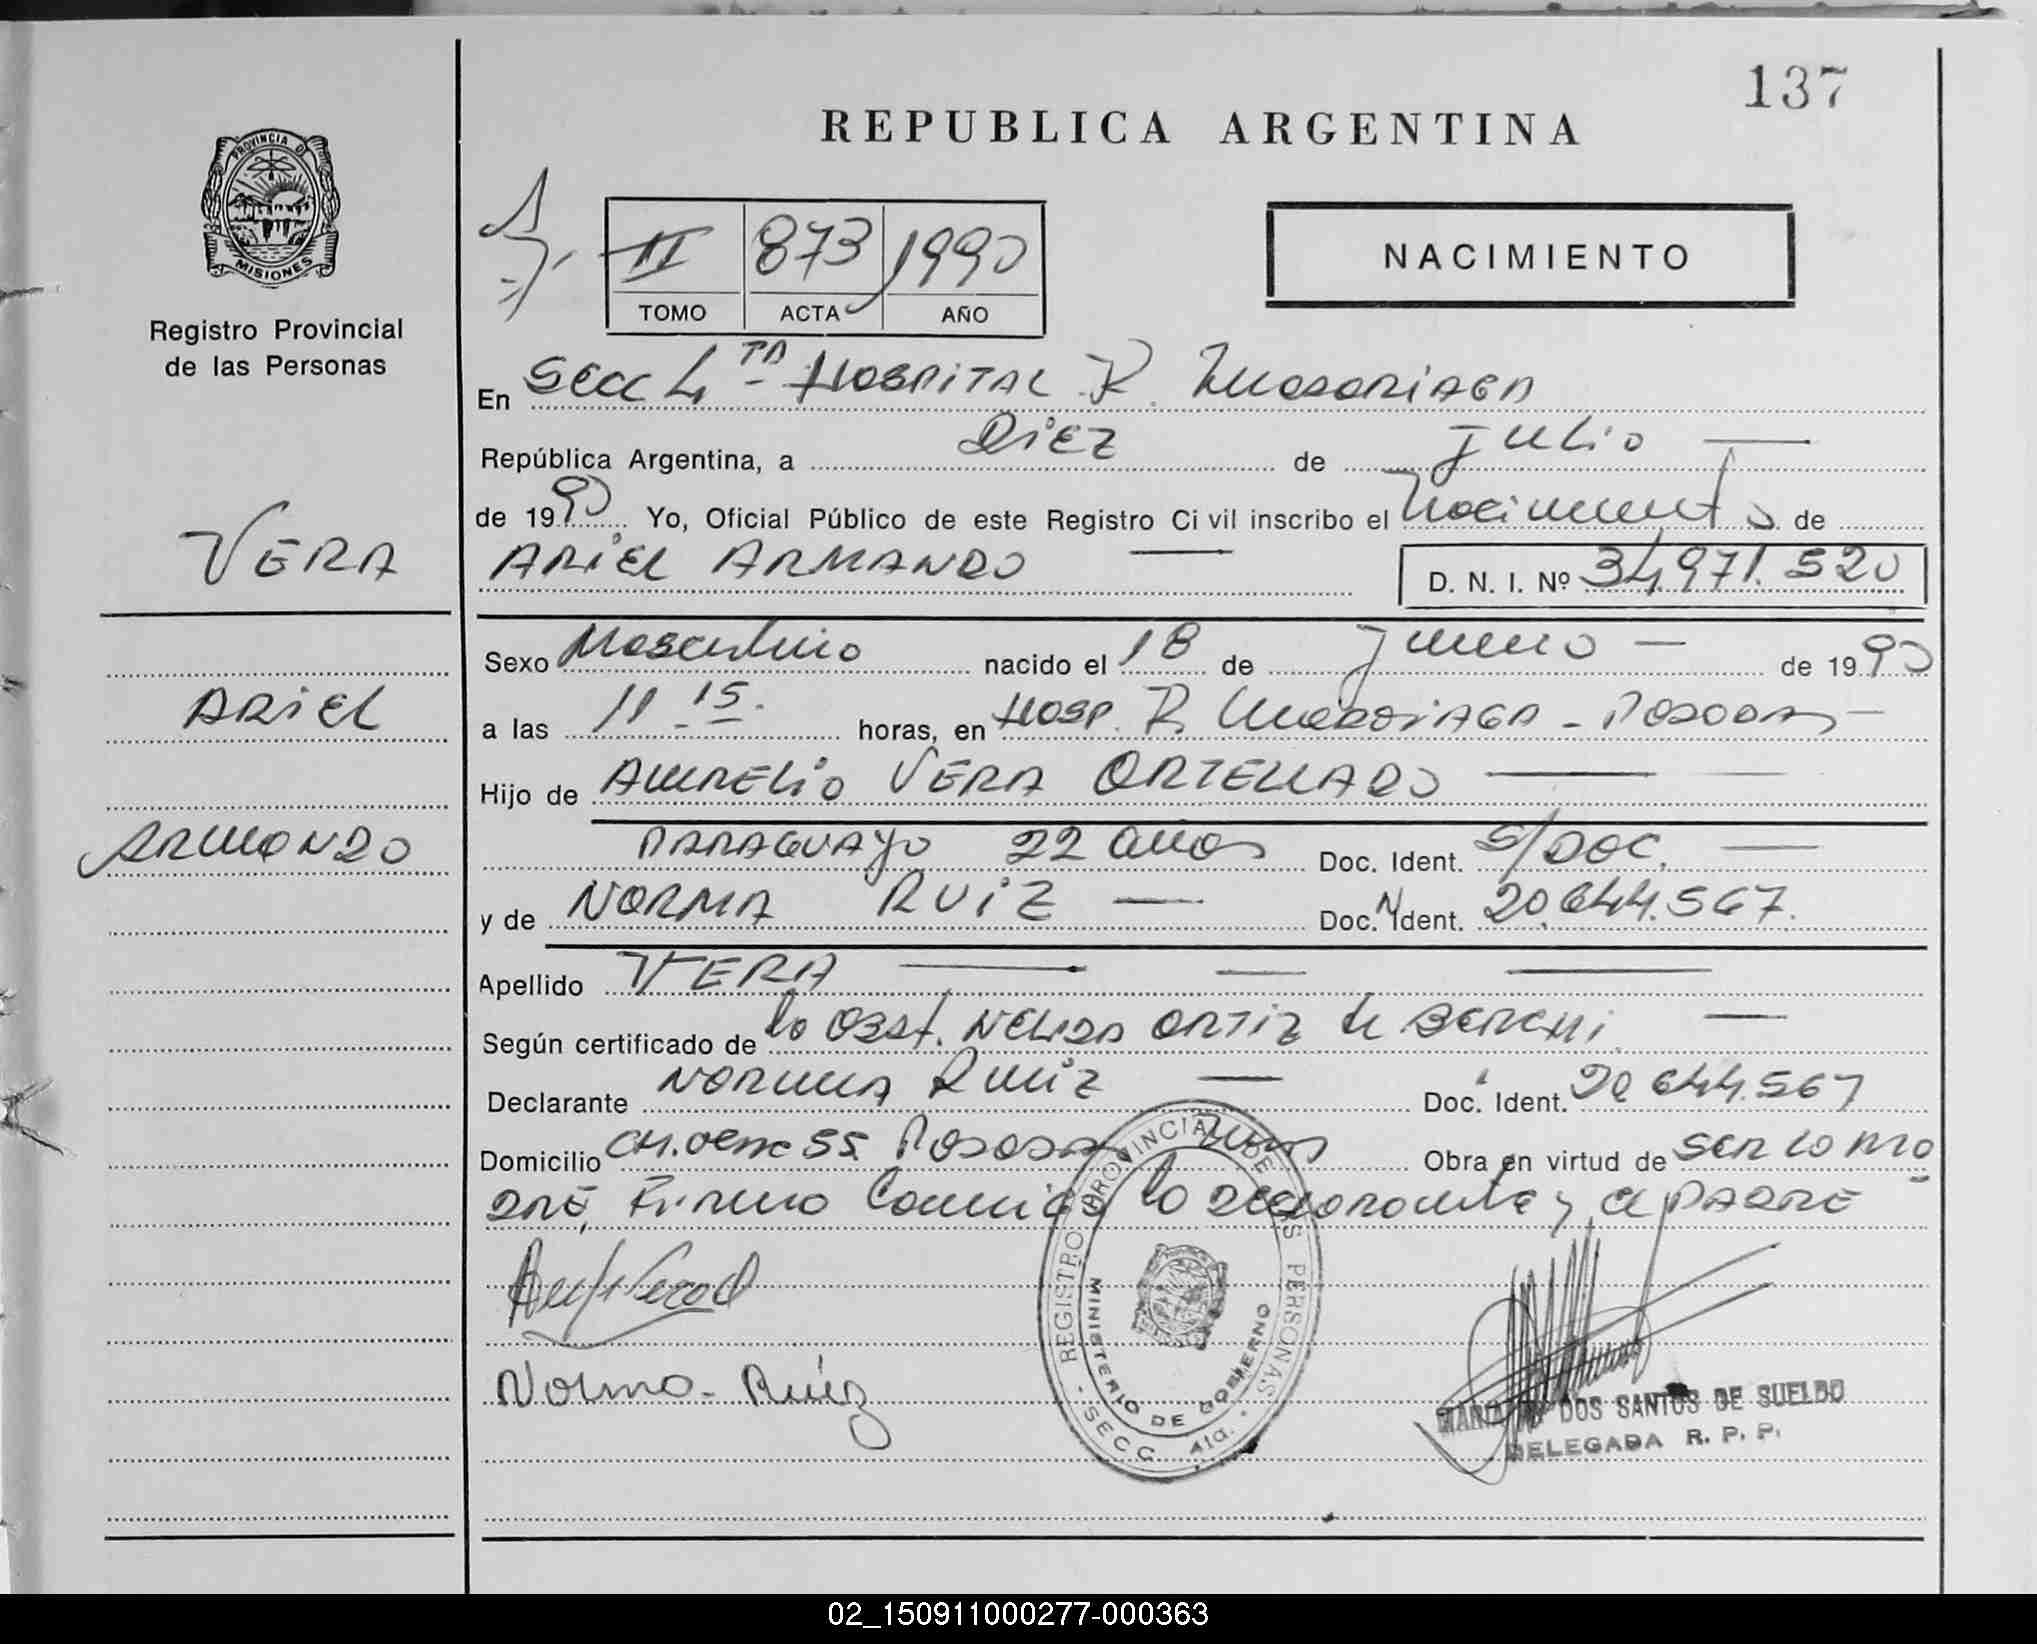 137
REPUBLICA ARGENTINA
PROVINCIA DE
MISIONES
Registro Provincial
de las Personas
II 873 1990
TOMO ACTA AÑO
NACIMIENTO
En Secc 4TA - HOSPITAL R. Madariaga
República Argentina, a Diez de Julio
de 1990 Yo, Oficial Público de este Registro Civil inscribo el Nacimiento de
VERA
ARIEL ARMANDO D. N. I. Nº 34.971.520
Sexo Masculino nacido el 18 de Junio de 1990
ARIEL
a las 11-15. horas, en Hosp. R. Madariaga - Posadas
Hijo de AURELIO VERA ORTELLADO
ARMANDO
PARAGUAYO 22 años Doc. Ident. S/DOC.
y de NORMA RUIZ Doc. Ident. 20.644.567.
Apellido VERA
Según certificado de la Obst. NELIDA ORTIZ de
Declarante NORMA RUIZ Doc. Ident. 20.644.567
Domicilio CH. 55. Posadas Obra en virtud de ser la MA
DRE, Firma Conmigo la declarante y el PADRE
Norma - Ruiz
REGISTRO PROVINCIAL DE LAS PERSONAS
MINISTERIO DE GOBIERNO
- SECC. 4ta. -
DOS SANTOS DE SUELDO
DELEGADA R. P. P.
02_150911000277-000363